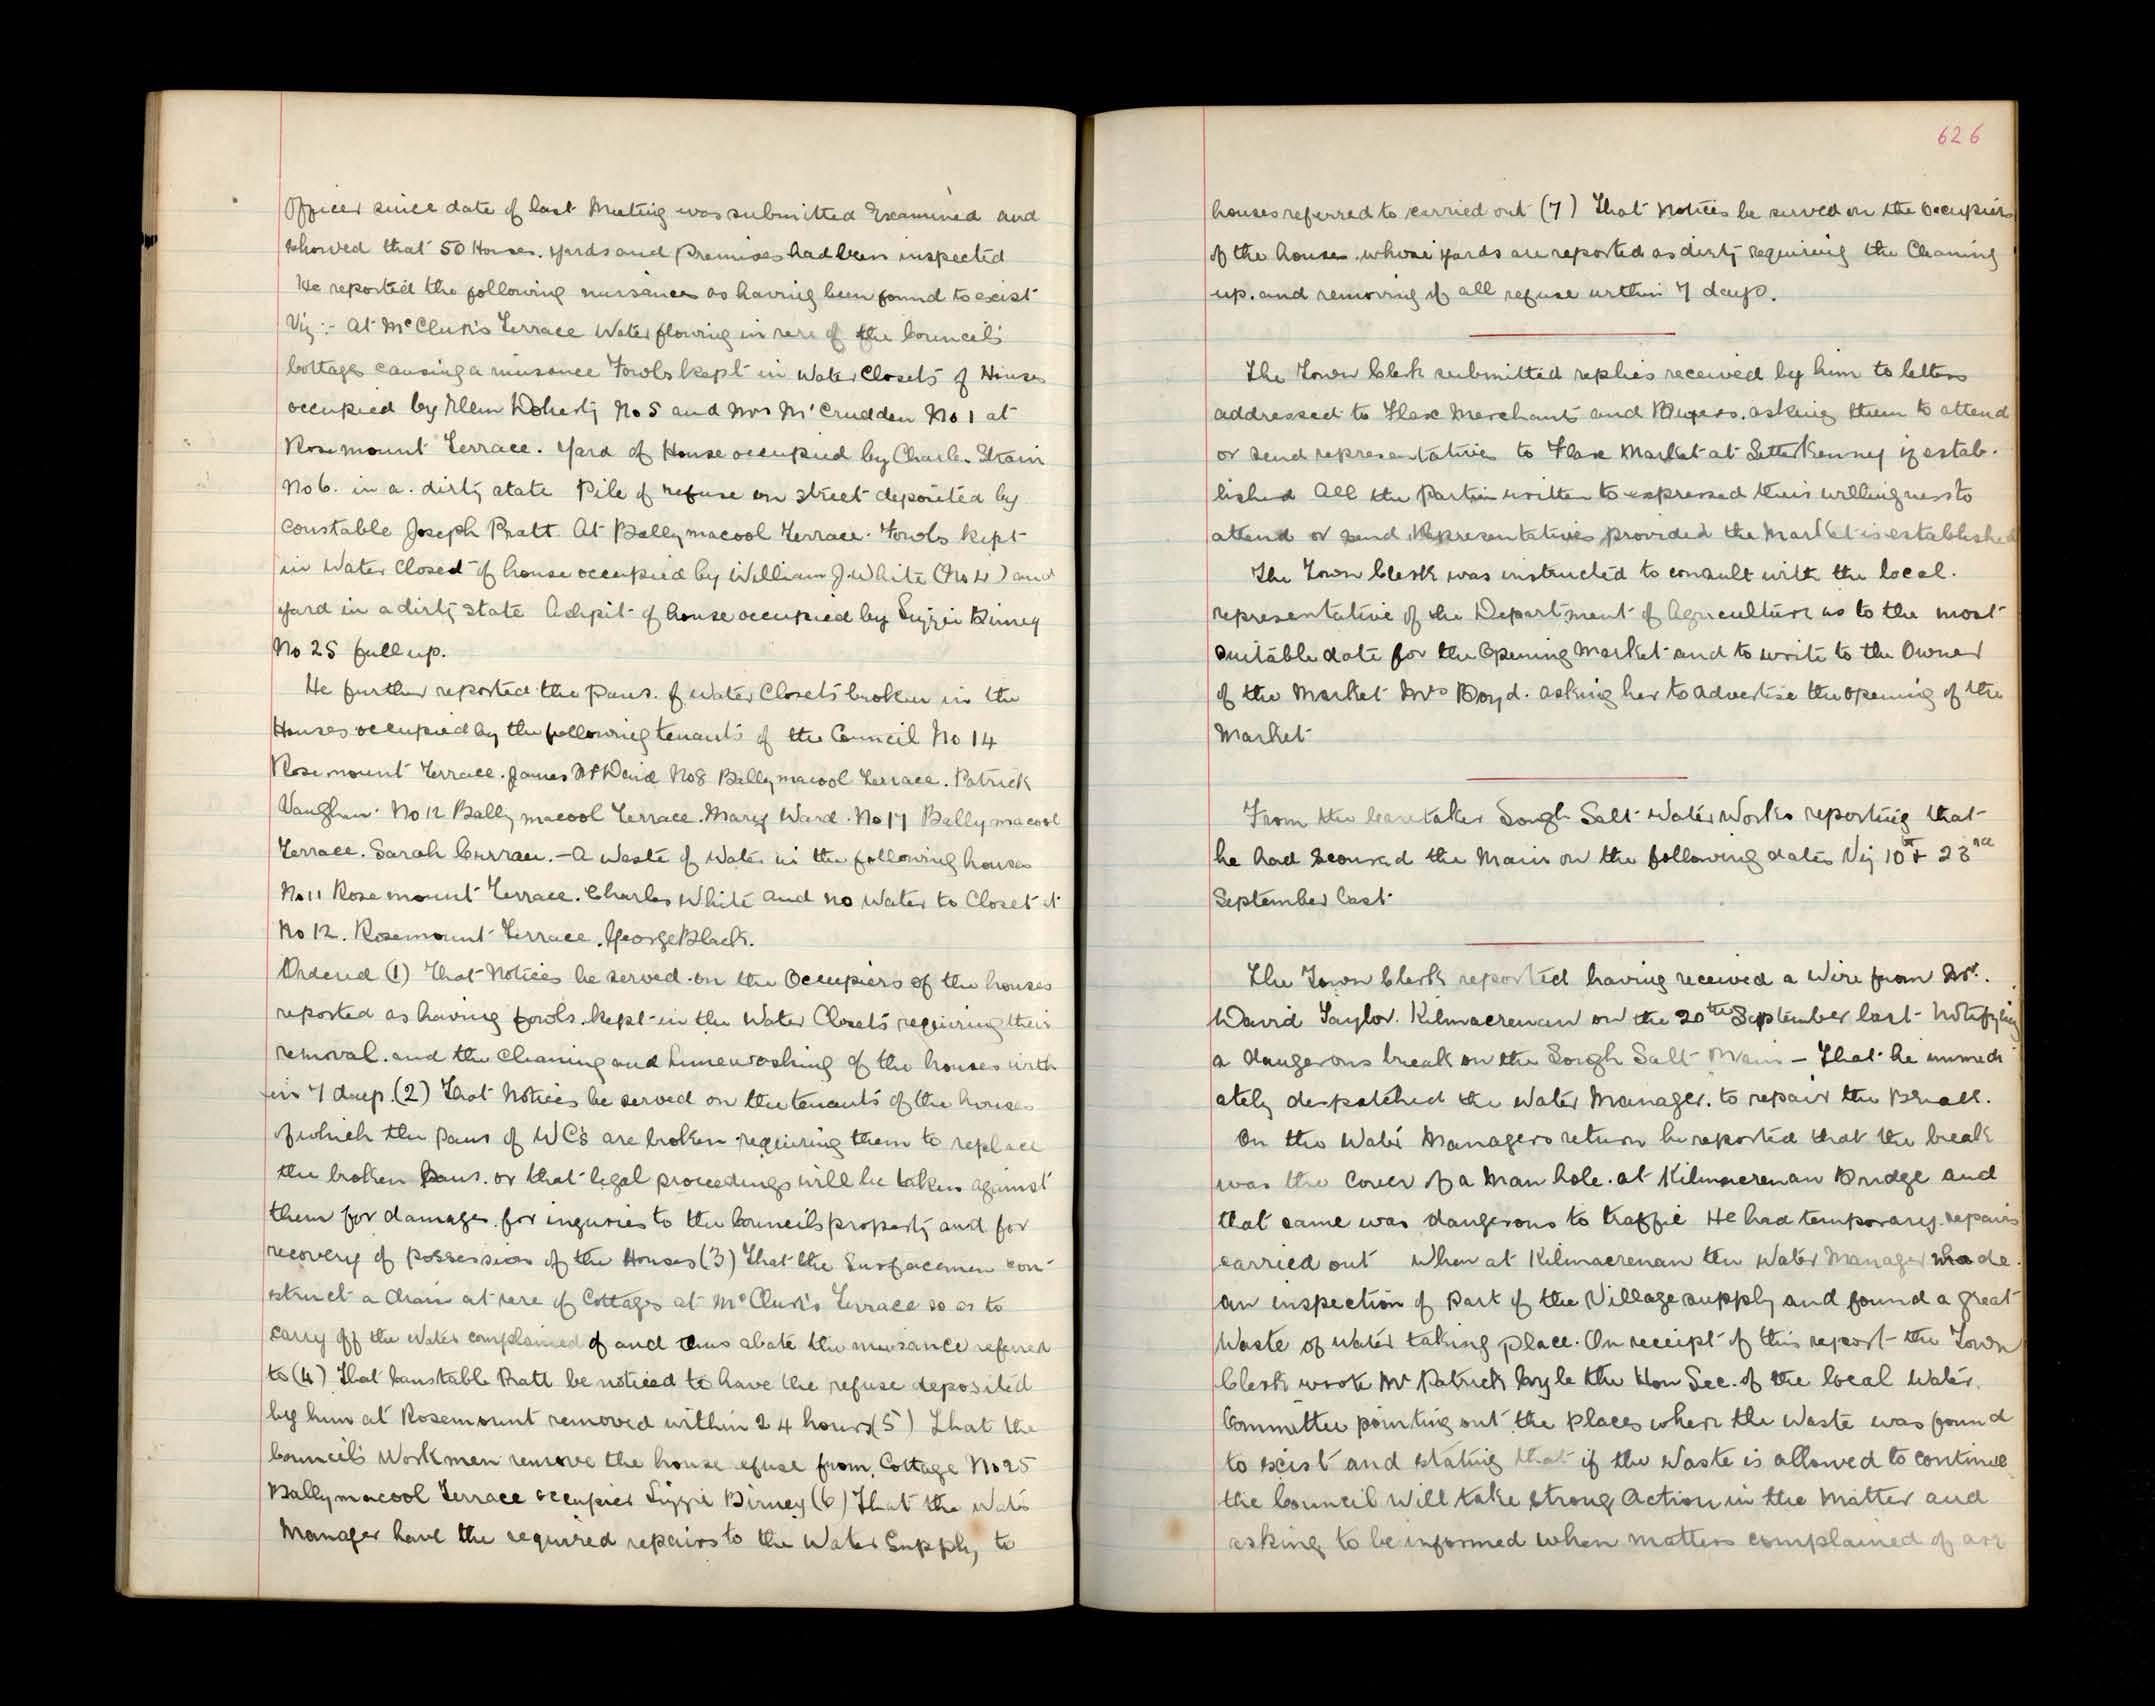 Officer since date of last Meeting was submitted Examined and
showed that 50 Houses. yards and Premises had been inspected
He reported the following nuisances as having been found to exist
Viz :- At McClure's Terrace Water flowing in rere of the Council's
Cottages causing a nuisance Fowls kept in Water Closets of Houses
occupied by Doherty No 5 and Mrs McCrudden No 1 at
Rosemount Terrace. Yard of House occupied by Charles Strain
No 6. in a. dirty state Pile of refuse on street deposited by
Constable Joseph Pratt At Ballymacool Terrace. Fowls kept
in Water Closed of house occupied by William J. White (No 4) and
yard in a dirty state Ashpit of house occupied by Lizzie Birney
No 25 full up.
He further reported the pans. of water Closets broken in the
Houses occupied by the following tenants of the Council No 14
Rosemount Terrace. James McDaid No 8 Ballymacool Terrace. Patrick
Vaughan. No 12 Ballymacool Terrace. Mary Ward. No 17 Ballymacool
Terrace. Sarah Curran. - A waste of Water in the following houses
No 11 Rosemount Terrace. Charles White and no water to Closet at
No 12. Rosemount Terrace. George Black.
Ordered (1) That Notices be served on the Occupiers of the houses
reported as having fowls. kept in the Water Closets requiring their
removal. and the Cleaning and Limewashing of the houses with
-in 7 days. (2) That Notices be served on the tenants of the houses
of which the pans of WC's are broken requiring them to replace
the broken pans. or that legal proceedings will be taken against
them for damages. for injuries to the Council's property and for
recovery of possession of the Houses (3) That the Surfacemen con-
struct a drain at rere of Cottages at McClure's Terrace so as to
carry off the water complained of and thus abate the nuisance referred
to (4) That Constable Pratt be noticed to have the refuse deposited
by him at Rosemount removed within 24 hours (5) That the
Council's Workmen remove the house refuse from. Cottage No 25
Ballymacool Terrace occupier Lizzie Birney (6) That the Water
Manager have the required repairs to the Water Supply, to
626
houses referred to carried out (7) That Notices be served on the occupiers
of the houses. whose yards are reported as dirty requiring the Cleaning
up. and removing of all refuse within 7 days.
The Town Clerk submitted replies received by him to letters
addressed to Flax Merchants and Buyers. asking them to attend
or send representatives to Flax Market at Letterkenny if estab-
lished All the parties written to expressed their willingness to
attend or send Representatives provided the Market is established
The Town Clerk was instructed to consult with the local.
representative of the Department of Agriculture as to the most
suitable date for the Opening Market and to write to the Owner
of the Market Mrs Boyd. asking her to advertise the opening of the
Market
From the Caretaker Lough Salt Water Works reporting that
he had scoured the Main on the following dates Viz 10th & 23rd
September last
The Town Clerk reported having received a Wire from Mr.
David Taylor. Kilmacrenan on the 20th September last Notifying
a dangerous break on the Lough Salt Main - That he immedi
ately despatched the Water Manager. to repair the Break.
On the Water Managers return he reported that the break
was the Cover of a Man hole. at Kilmacrenan Bridge and
that same was dangerous to traffic He had temporary repairs
carried out When at Kilmacrenan the Water Manager made.
an inspection of part of the Village supply and found a great
Waste of water taking place. On receipt of this report the Town
Clerk wrote Mr Patrick Coyle the Hon Sec. of the local Water.
Committee pointing out the places where the Waste was found
to exist and stating that if the Waste is allowed to continue
the Council will take strong Action in the Matter and
asking to be informed when matters complained of are